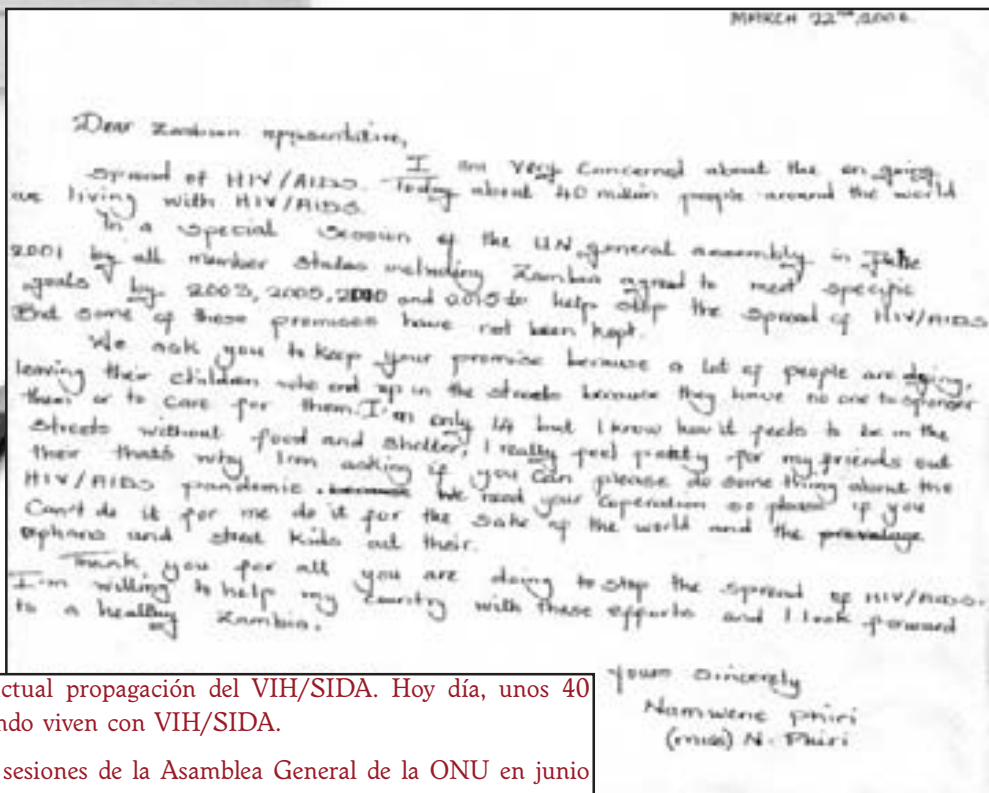 MARCH 22nd, 2006.
Dear Zambian representative,
I am very concerned about the on going
spread of HIV/AIDS. Today about 40 million people around the world
are living with HIV/AIDS.
In a special session of the UN general assembly in
2001 by all member states including Zambia agreed to meet specific
goals by 2003, 2005, 2010 and 2015 to help stop the spread of HIV/AIDS
But some of these promises have not been kept.
We ask you to keep your promise because a lot of people are dying,
leaving their children who end up in the streets because they have no one to sponser
them or to care for them. I'm only 14 but I know how it feels to be in the
streets without food and shelter, I really feel for my friends out
their thats why I'm asking if you can please do some thing about the
HIV/AIDS prandemic. We need your coperation so please if you
Can't do it for me do it for the sake of the world and the
orphans and street kids out their.
Thank you for all you are doing to stop the spread of HIV/AIDS.
I'm willing to help my country with these efforts and I look forward
to a healthy Zambia.
yours sincerely
Namwene phiri
(miss) N. Phiri
ctual propagación del VIH/SIDA. Hoy día, unos 40
ndo viven con VIH/SIDA.
sesiones de la Asamblea General de la ONU en junio